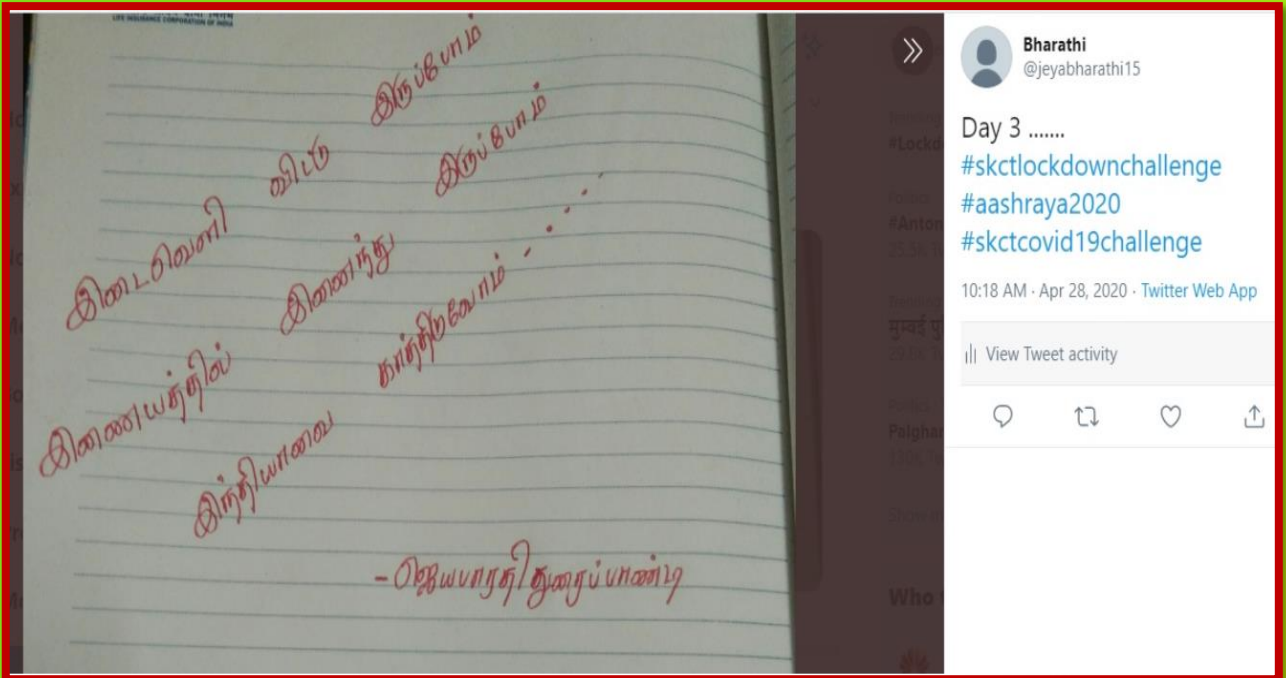 LIFE INSURANCE CORPORATION OF INDIA
இடைவெளி விட்டு இருப்போம்
இணையத்தில் இணைந்து இருப்போம்
இந்தியாவை காத்திடுவோம் - . . . .
- ஜெயபாரதி துரைப்பாண்டி
Bharathi
@jeyabharathi15
Day 3 .......
#skctlockdownchallenge
#aashraya2020
#skctcovid19challenge
10:18 AM · Apr 28, 2020 · Twitter Web App
View Tweet activity
#Lockd
#Anton
Palghar
Who